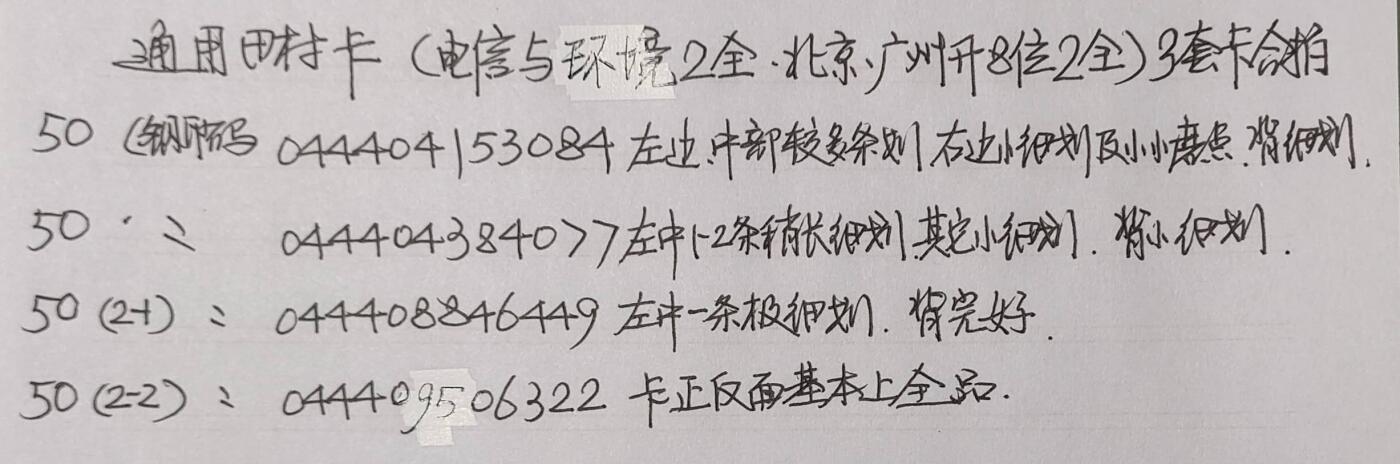 通用田村卡(电信与环境2全.北京.广州开8位2全)3套卡合拍
50 (钢码 044404153084 左边.中部较多条划.右边小细划及小小磨点.背细划.
50 044404384077左中1-2条稍长细划.其它小细划.背小细划.
50 (2-1) : 044408846449 左中一条极细划.背完好.
50 (2-2) : 044409506322 卡正反面基本上全品.